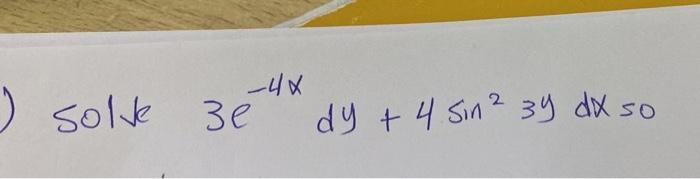 ) solve 3e^-4x dy + 4 sin² 3y dx = 0